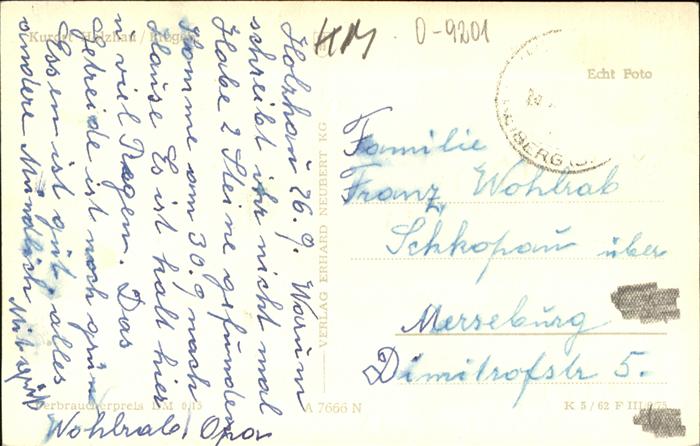 Kurort Holzhau / Erzgeb.
HM
D-9201
Echt Foto
Holzhau 26.9. Warum
schreibt ihr nicht mal
Habe 2 Steine gefunden
Komme am 30.9 nach
Hause Es ist kalt hier
u. viel Regen. Das
Getreide ist noch grün
Essen ist gut, alles
andere Mündlich
Wohlrab, Opa
VERLAG ERHARD NEUBERT KG
Familie
Franz Wohlrab
Schkopau über
Merseburg
Dimitrofstr 5.
Verbraucherpreis DM 0,15
A 7666 N
K 5/62 F III